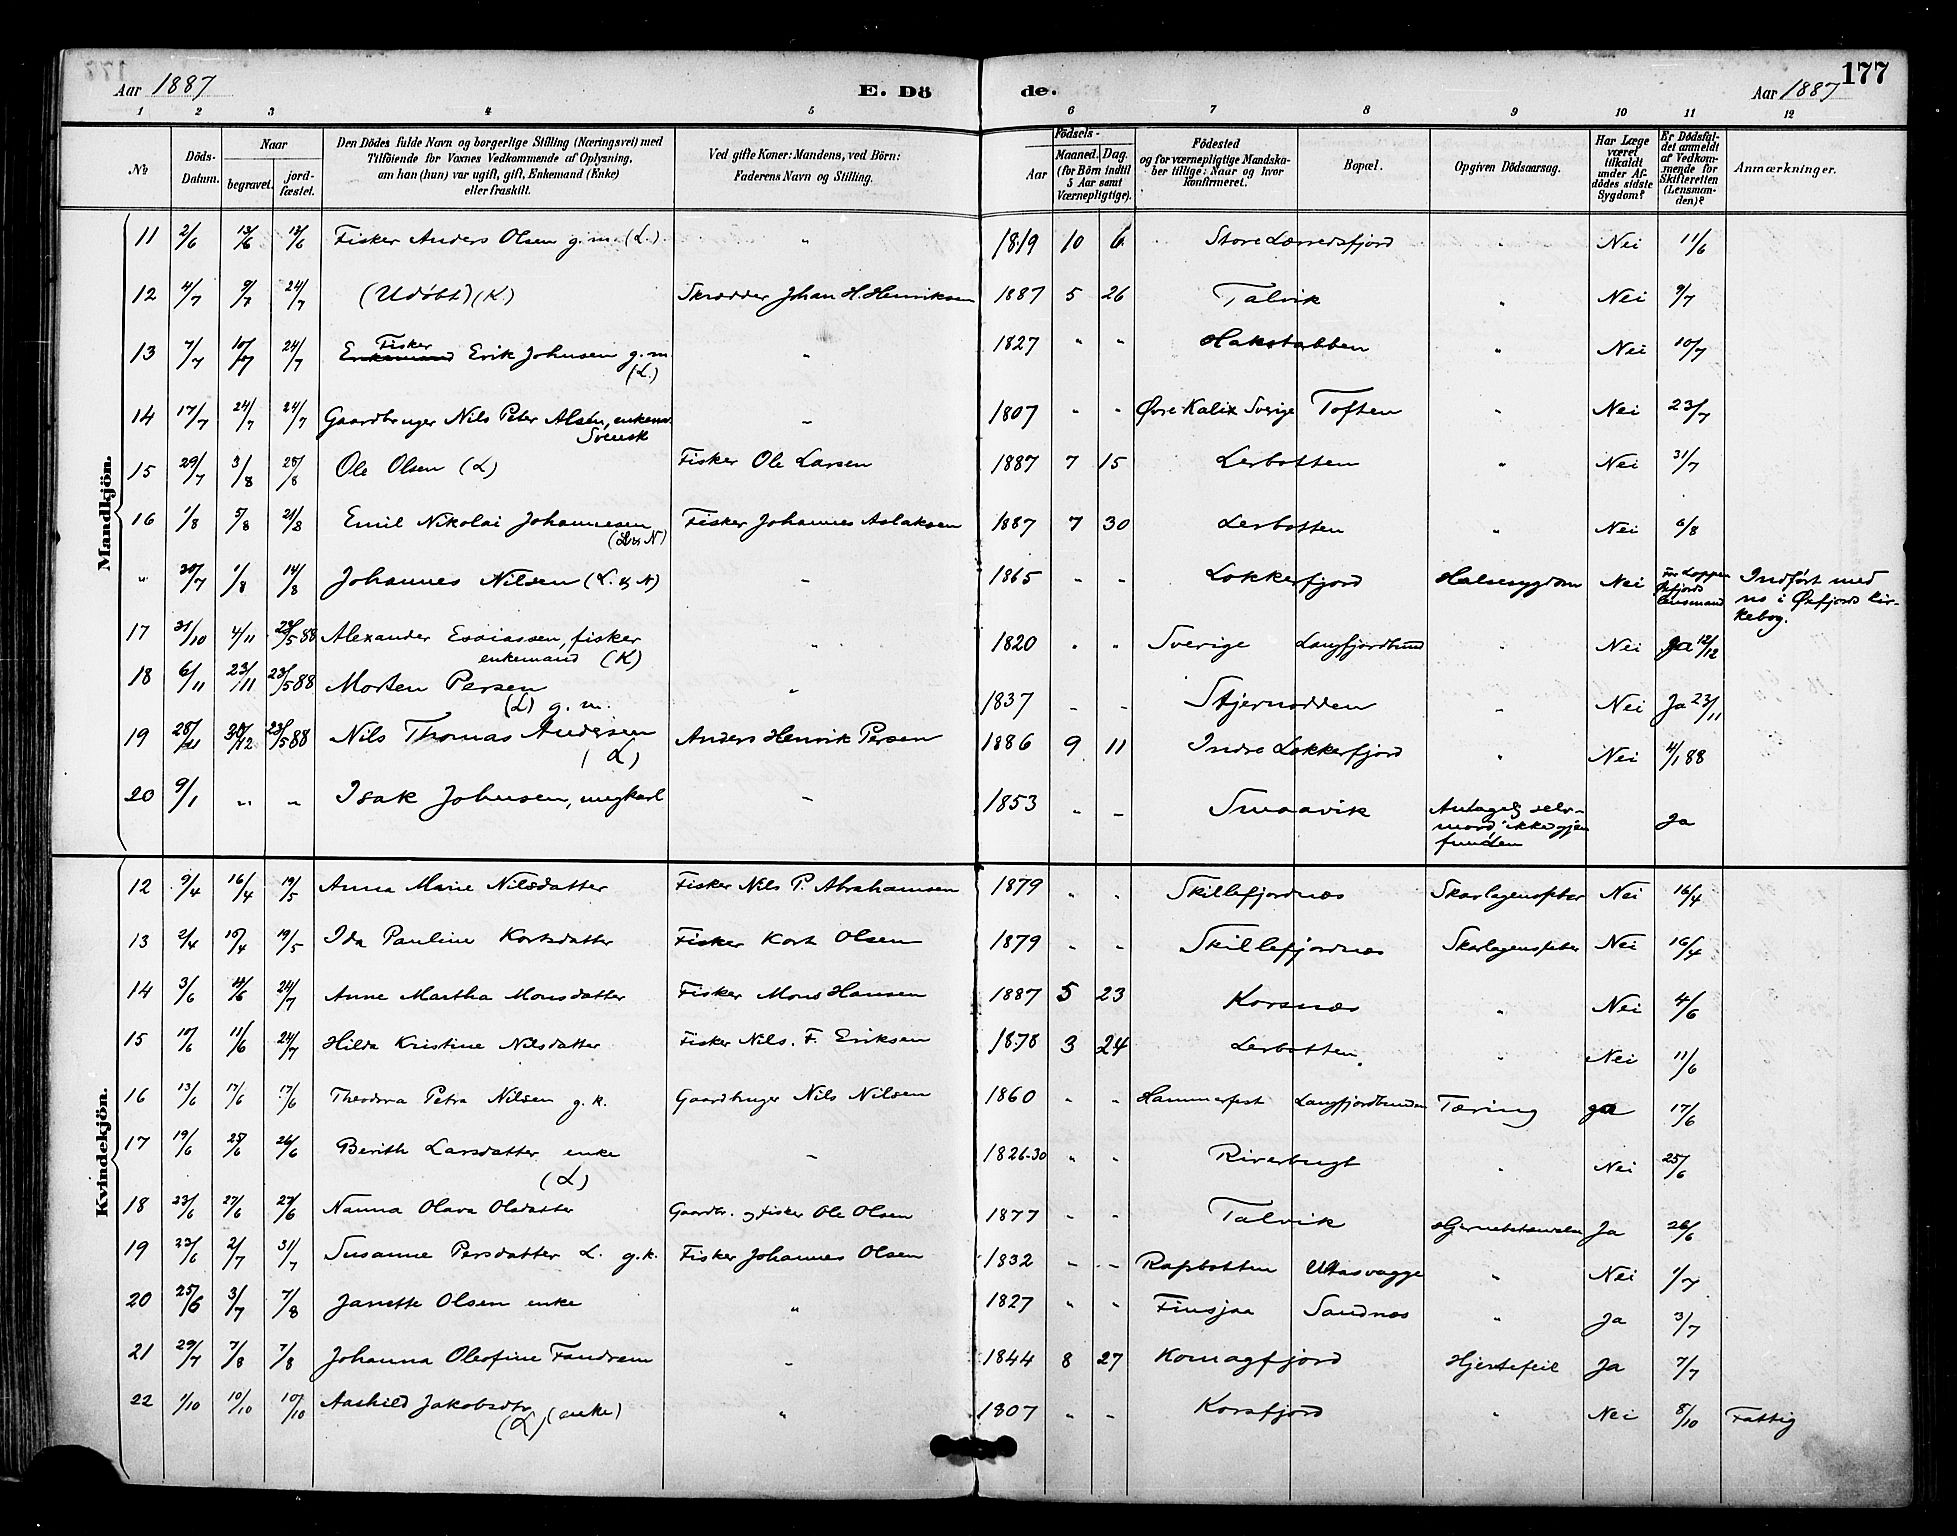 177
Aar 1887 E. Dö de. Aar 1887
1 2 3 4 5 6 7 8 9 10 11 12
No Döds-Datum. Naar begravet. jordfæstet. Den Dödes fulde Navn og borgerlige Stilling (Næringsvei) med Tilföiende for Voxnes Vedkommende af Oplysning, om han (hun) var ugift, gift, Enkemand (Enke) eller fraskilt. Ved gifte Koner: Mandens, ved Börn: Faderens Navn og Stilling. Födsels- Aar Maaned. Dag. (for Börn indtil 5 Aar samt Værnepligtige). Födested og for værnepligtige Mandskaber tillige: Naar og hvor konfirmeret. Bopæl. Opgiven Dödsaarsag. Har Læge været tilkaldt under Afdödes sidste Sygdom? Er Dödsfaldet anmeldt af Vedkommende for Skifteretten (Lensmanden)? Anmærkninger.
Mandkjön.
11 2/6 13/6 13/6 Fisker Anders Olsen g.m. (L.) " 1819 10 6 Store Lærredsfjord " Nei 11/6
12 4/7 9/7 24/7 (Udøbt) (K) Skrædder Johan H. Henriksen 1887 5 26 Talvik " Nei 9/7
13 7/7 10/7 24/7 Enkemand Fisker Erik Johnsen g.m. (L.) " 1827 " " Hakstabben " Nei 10/7
14 17/7 24/7 24/7 Gaardbruger Nils Peter Alsén, enkem. Svensk - 1807 " " Øvre Kalix Sverige Toften " Nei 23/7
15 29/7 3/8 28/8 Ole Olsen (L) Fisker Ole Larsen 1887 7 15 Lerbotten " Nei 31/7
16 1/8 5/8 21/8 Emil Nikolai Johannesen (L. & N) Fisker Johannes Aslaksen 1887 7 30 Lerbotten " Nei 6/8
" 30/7 1/8 14/8 Johannes Nilsen (L. & N) - 1865 - - Lokkerfjord Halssygdom Nei for Loppen Øxfjords lensmand Indført med no i Øxfjords kirkebog.
17 31/10 4/11 23/5 88 Alexander Esaiassen, fisker enkemand (K) " 1820 " " Sverige Langfjordbund " Nei Ja 12/12
18 6/11 23/11 23/5 88 Morten Persen (L) g.m. " 1837 - - Stjernodden " Nei Ja 23/11
19 28/11 30/12 23/5 88 Nils Thomas Andersen (L) Anders Henrik Persen 1886 9 11 Indre Lokkerfjord " Nei 4/1 88
20 9/1 " " Isak Johnsen, ungkarl - 1853 - - Smaavik Antagelig selvmord, ikke gjenfunden Ja
Kvindekjön.
12 9/4 16/4 19/5 Anna Marie Nilsdatter Fisker Nils P. Abrahamsen 1879 " " Skillefjordnæs Skarlagensfeber Nei 16/4
13 2/4 15/4 19/5 Ida Pauline Kortsdatter Fisker Kort Olsen 1879 - - Skillefjordnæs Skarlagensfeber Nei 16/4
14 3/6 /6 24/7 Anne Martha Monsdatter Fisker Mons Hansen 1887 5 23 Korsnæs " Nei 4/6
15 10/6 11/6 24/7 Hilda Kristine Nilsdatter Fisker Nils. F. Eriksen 1878 3 24 Lerbotten " Nei 11/6
16 13/6 17/6 17/6 Theodora Petra Nilsen g.k. Gaardbruger Nils Nilsen 1860 " " Hammerfest Langfjordbunden Tæring ja 17/6
17 19/6 25/6 26/6 Berith Larsdatter enke (L) - 1826-30 " " Riverbugt " Nei 25/6
18 23/6 27/6 27/6 Nanna Olava Olsdatter Gaardbr. og fisker Ole Olsen 1877 - - Talvik Ja 26/6
19 23/6 2/7 31/7 Susanne Persdatter L. g.k. Fisker Johannes Olsen 1832 - - Rafsbotten Uttasvagge " Nei 1/7
20 25/6 3/7 7/8 Janette Olsen enke " 1827 " " Finsjaa Sandnæs " Ja 3/7
21 29/7 7/8 7/8 Johanna Oleofine Fandrem - 1844 8 27 Komagfjord Hjertefeil Ja 7/7
22 1/10 10/10 10/10 Aashild Jakobsdtr (L) (enke) " 1807 " " Korsfjord " Nei 8/10 Fattig